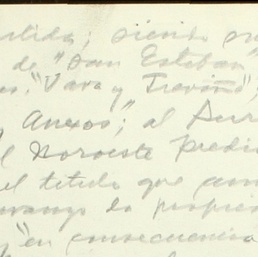 siendo
de "San Esteban"
"Vara y Treviño"
y Anexos"; al Sur
el Noroeste Predi
el titulo que am
rango la propie
y "en consecuencia